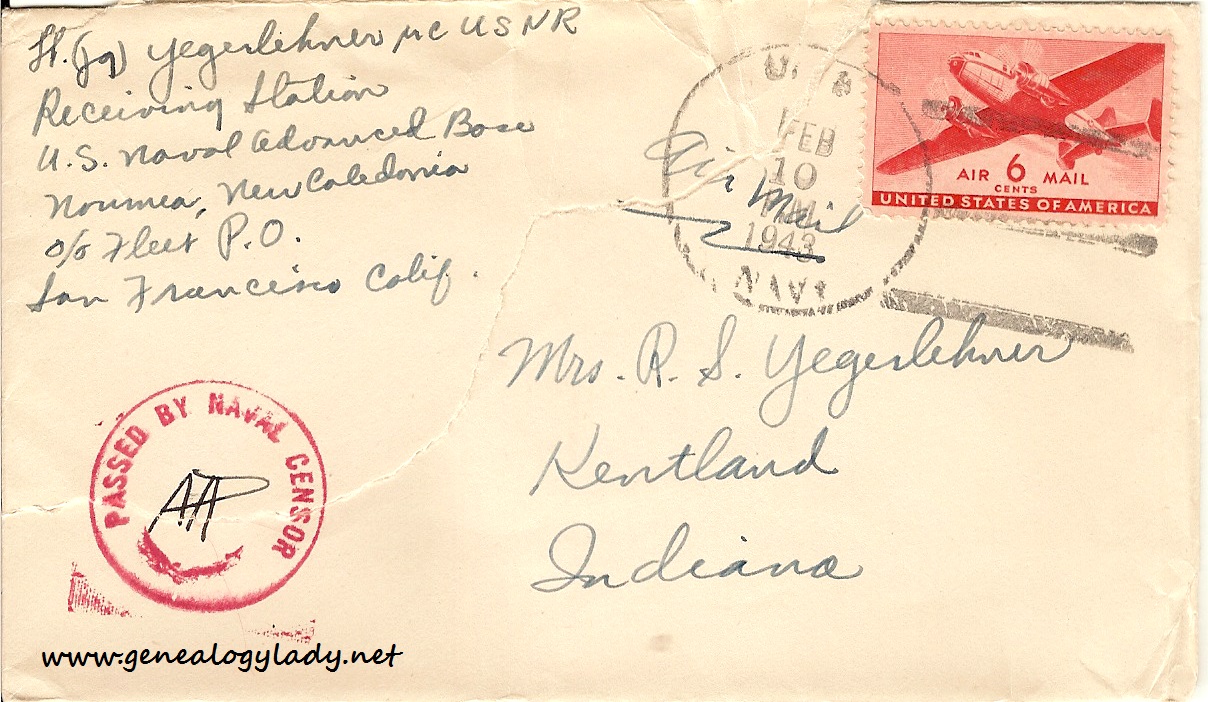 Lt. (jg) Yegerlehner MC USNR
Receiving Station
U.S. Naval Advanced Base
Noumea, New Caledonia
c/o Fleet P.O.
San Francisco Calif.
U.S.
FEB
10
1943
NAVY
Air Mail
AIR 6 MAIL
CENTS
UNITED STATES OF AMERICA
Mrs. R. S. Yegerlehner
Kentland
Indiana
PASSED BY NAVAL CENSOR
www.genealogylady.net